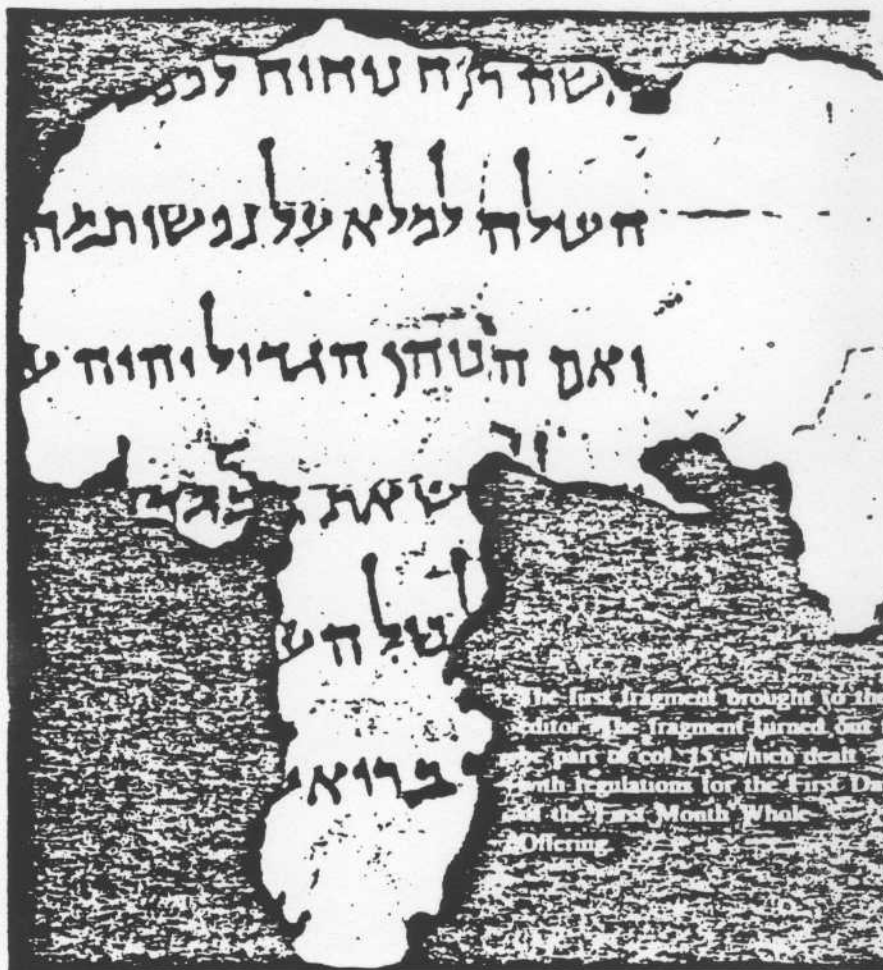 אשה ריח ניחוח לפני
האלה למלא על נפשותמה
ואם הכוהן הגדול יהיה
את
The first fragment brought to the
editor. The fragment turned out
be part of col. 15, which dealt
with regulations for the First Da
of the First Month Whole
Offering.